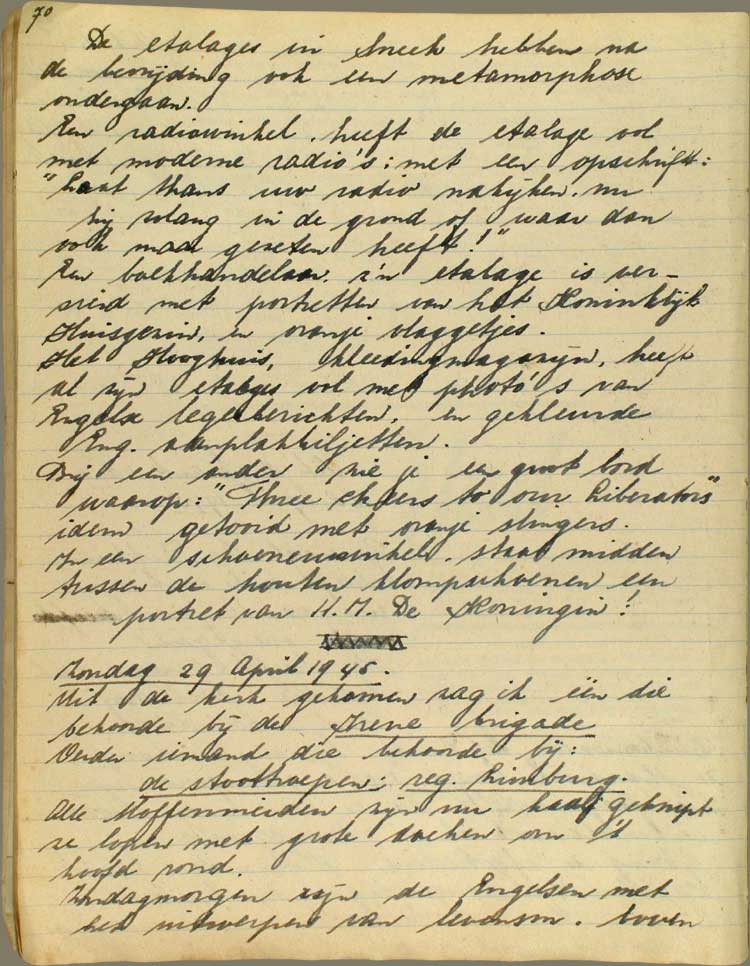 70
De etalages in Sneek hebben na
de bevrijding ook een metamorphose
ondergaan.
Een radiowinkel. heeft de etalage vol
met moderne radio's; met een opschrift:
"Laat thans uw radio nakijken. nu
hij zolang in de grond of waar dan
ook maar gezeten heeft!"
Een boekhandelaar. z'n etalage is ver-
sierd met portretten van het Koninklijk
Huisgezin, en oranje vlaggetjes.
Het Hooghuis, kledingmagazijn, heeft
al zijn etalages vol met photo's van
Engelse legerberichten, en gekleurde
Eng. aanplakbiljetten.
Bij een ander zie je een groot bord
waarop: "Three cheers to our Liberators"
idem getooid met oranje slingers.
In een schoenenwinkel. staat midden
tussen de houten klompschoenen een
portret van H.M. De Koningin!
Zondag 29 April 1945.
Uit de kerk gekomen zag ik één die
behoorde bij de Irene brigade
Verder iemand die behoorde bij:
de stoottroepen; reg. Limburg.
Alle Moffenmeiden zijn nu kaal geknipt
ze lopen met grote doeken om 't
hoofd rond.
Zondagmorgen zijn de Engelsen met
het uitwerpen van levensm. boven